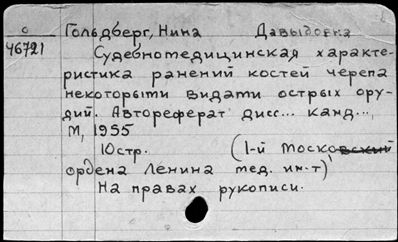 с
46721
Гольдберг, Нина Давыдовна
Судебномедицинская характе-
ристика ранений костей черепа
некоторыми видами острых ору-
дий. Автореферат дисс... канд...,
М, 1955
10стр. (1-й московский
ордена Ленина мед. ин-т)
На правах рукописи.